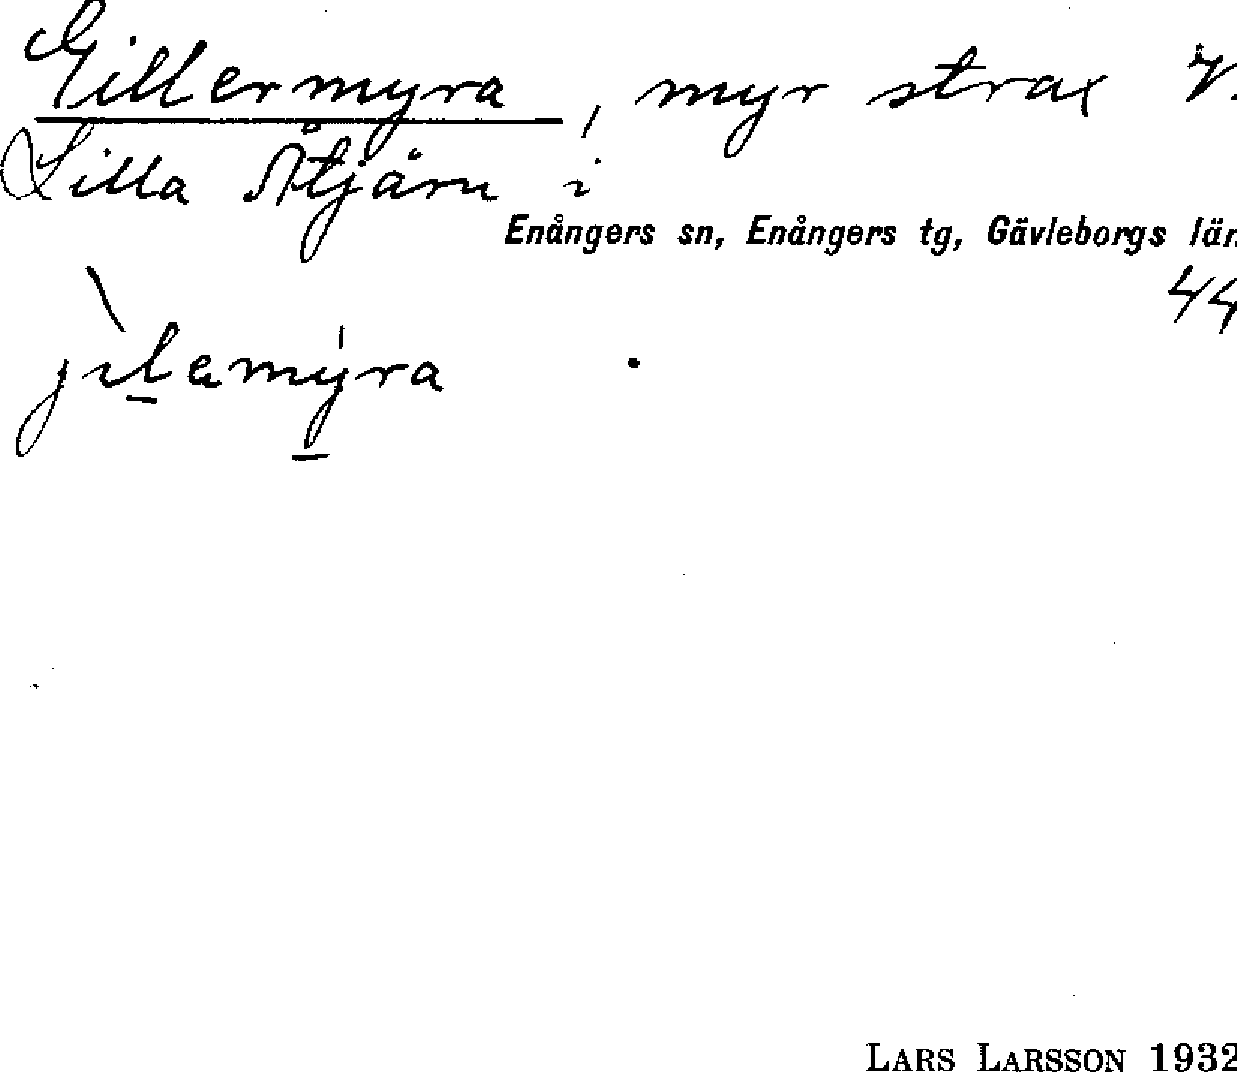 Gillermyra, myr strax V.
Lilla Åtjärn i
Enångers sn, Enångers tg, Gävleborgs län
44
jilamyra
LARS LARSSON 1932